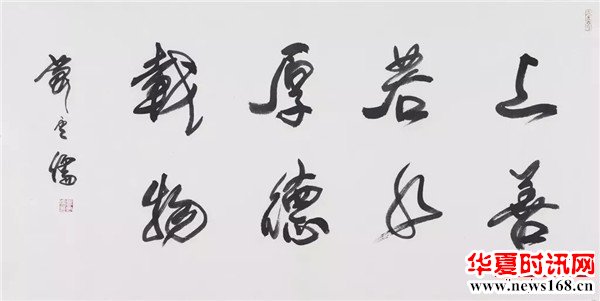 上善
若水
厚德
載物
萧云儒
华夏时讯网
www.news168.cn